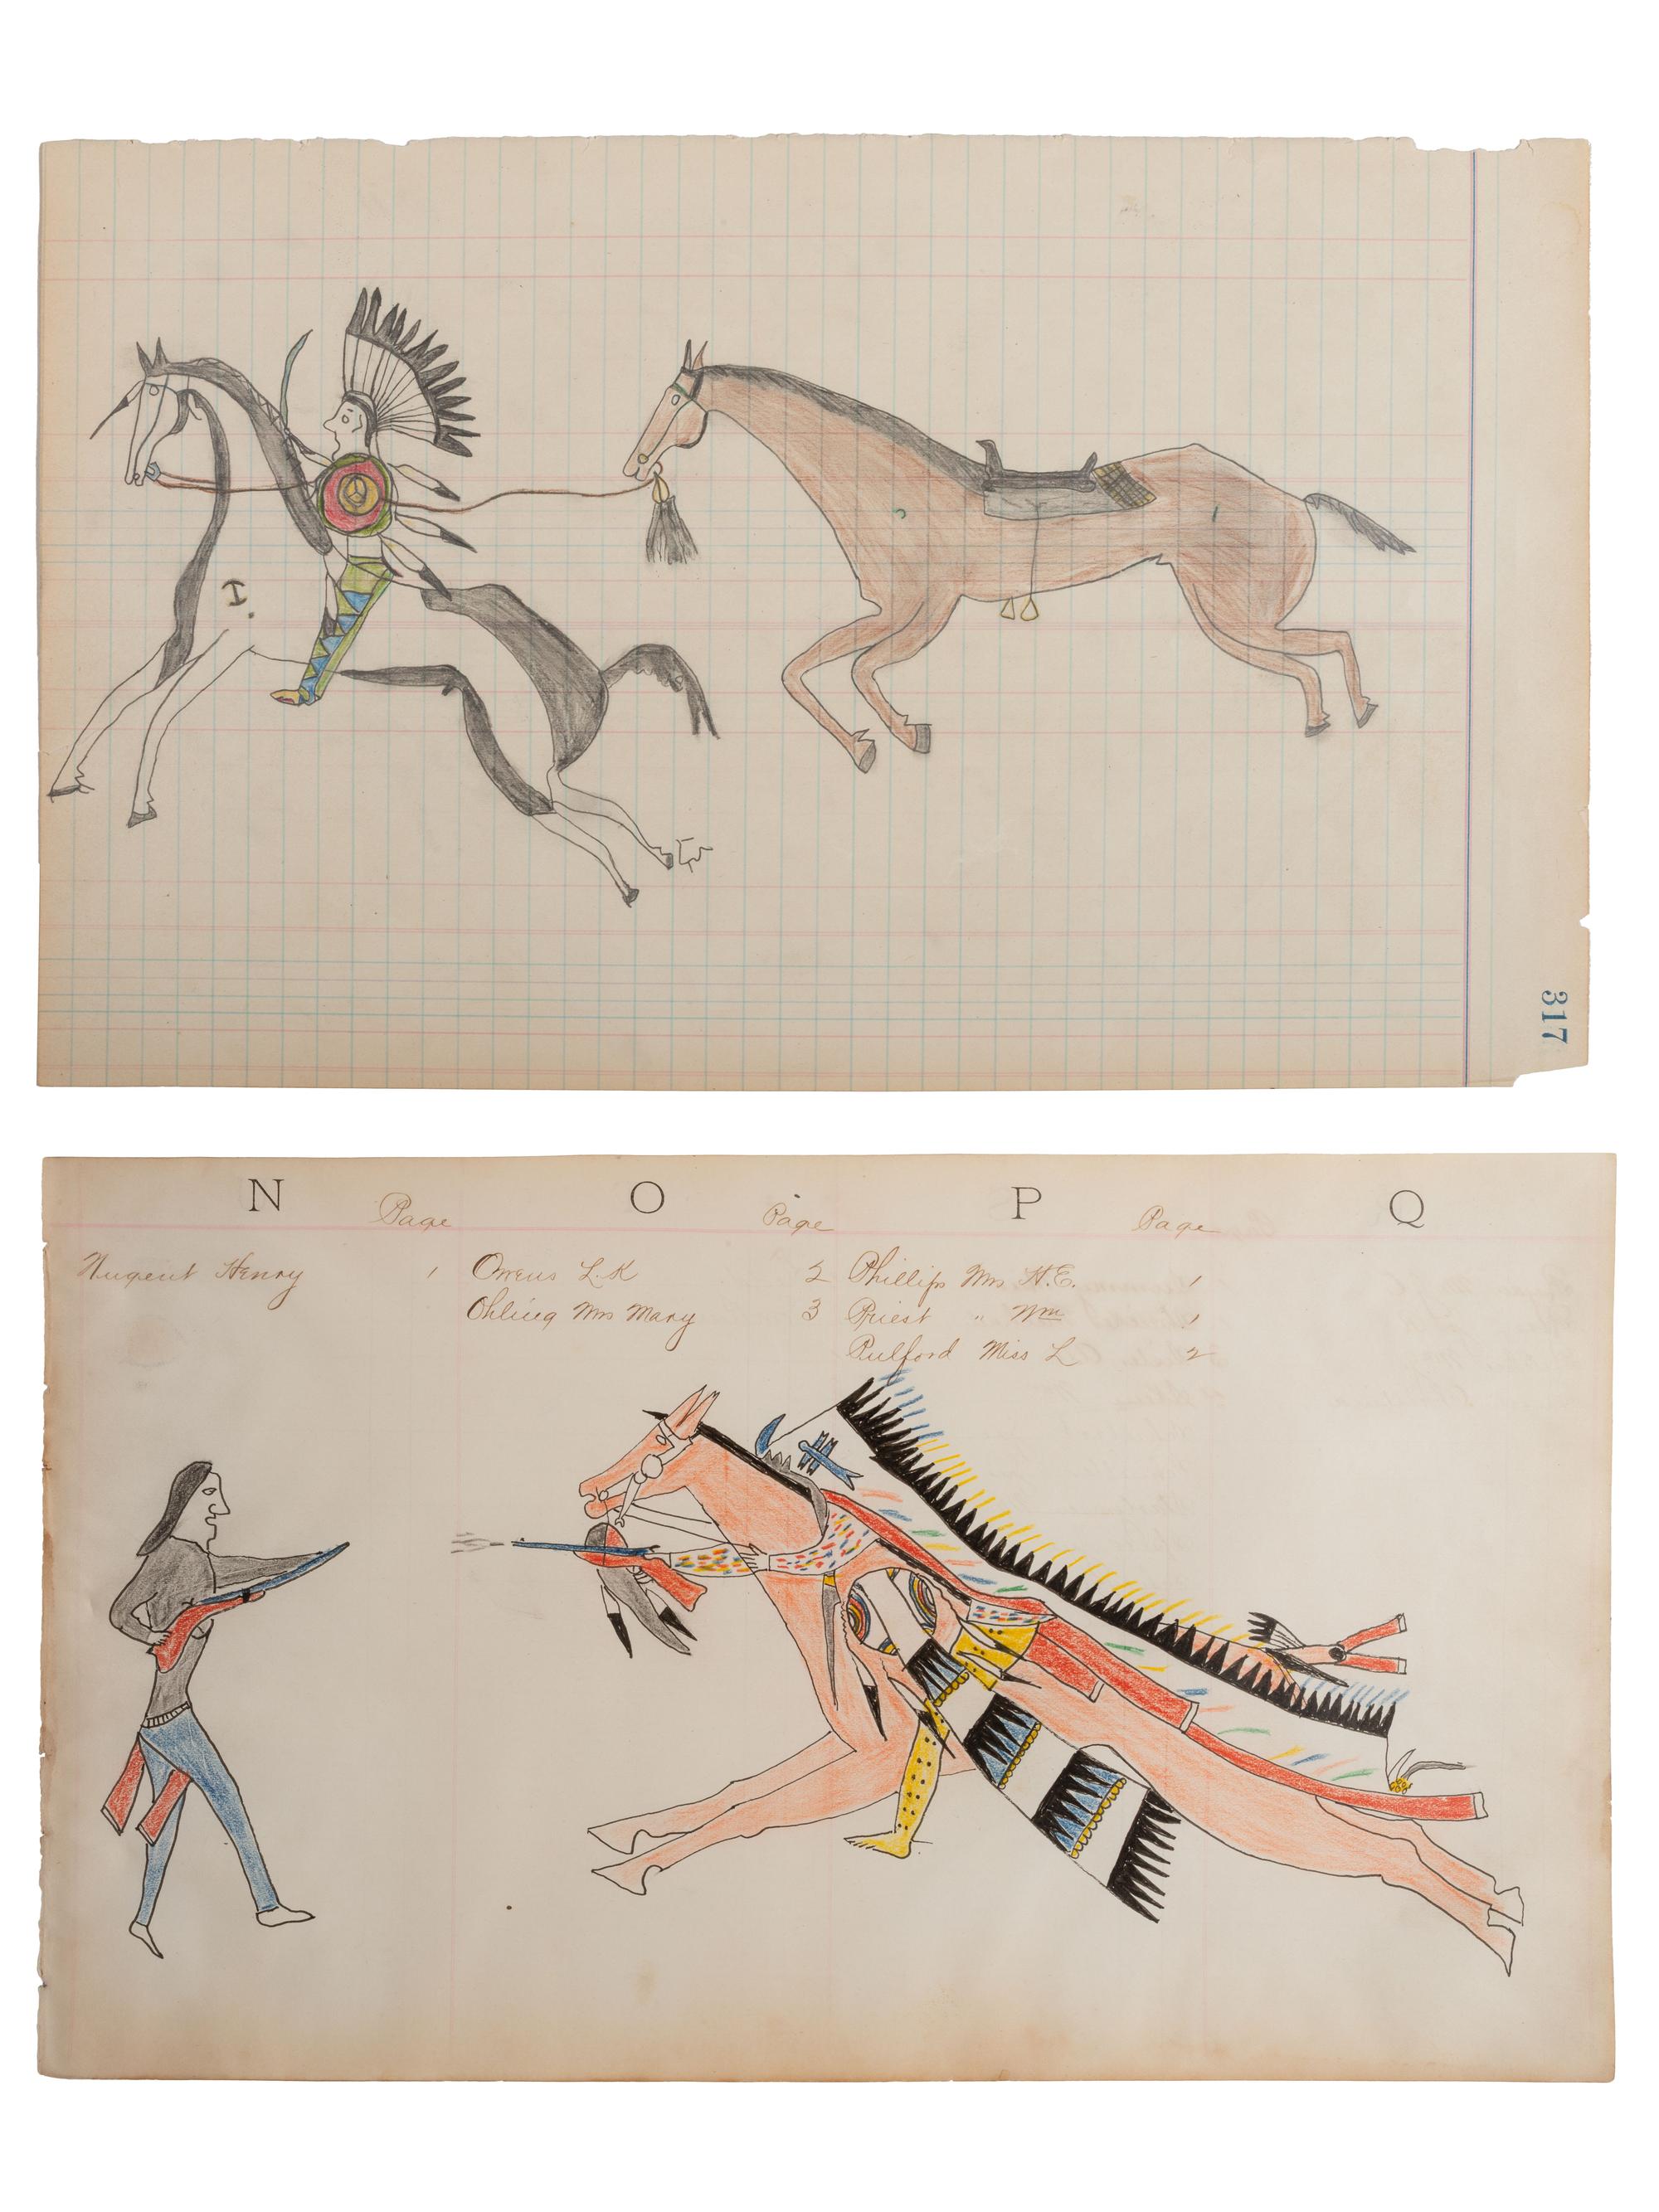 317
N O P Q
Page Page Page
Nugent Henry 1 Owens L.K 2 Phillips Mrs H.E. 1
Ohling Mrs Mary 3 Priest " Wm 1
Pulford Miss L 2